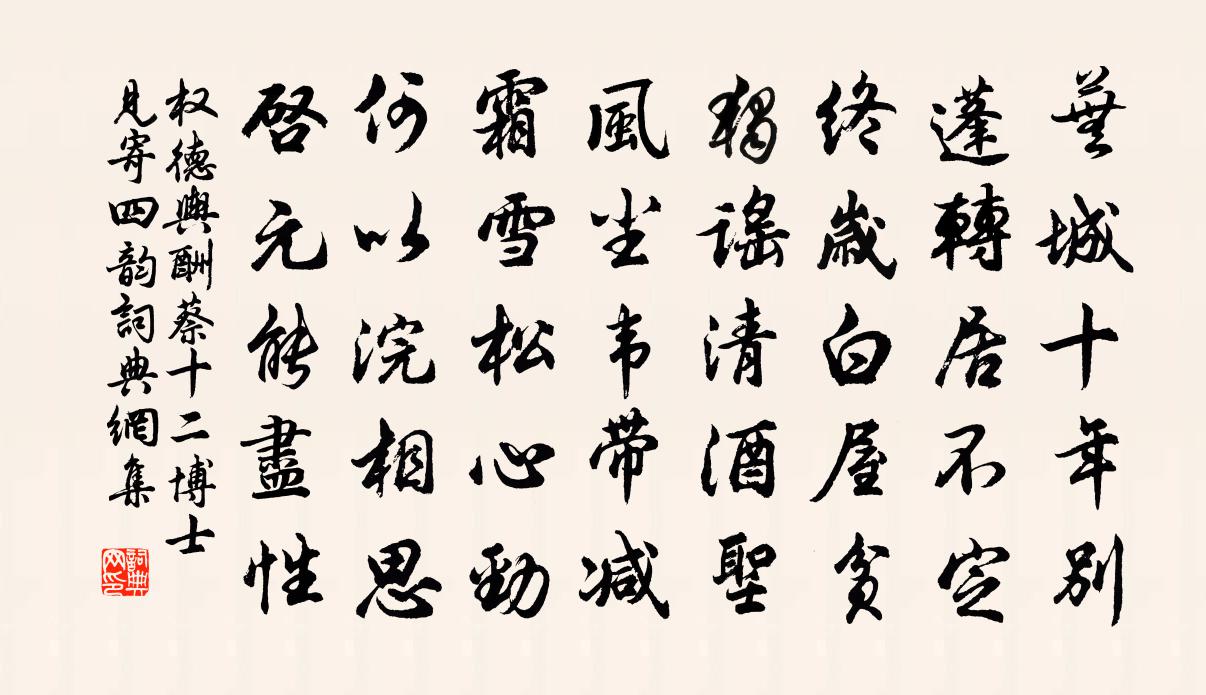 蕪城十年別
蓬轉居不定
終歲白屋貧
獨謠清酒聖
風尘韦带减
霜雪松心勁
何以浣相思
啓元能盡性
权德輿酬蔡十二博士
見寄四韵詞典網集
詞典網印